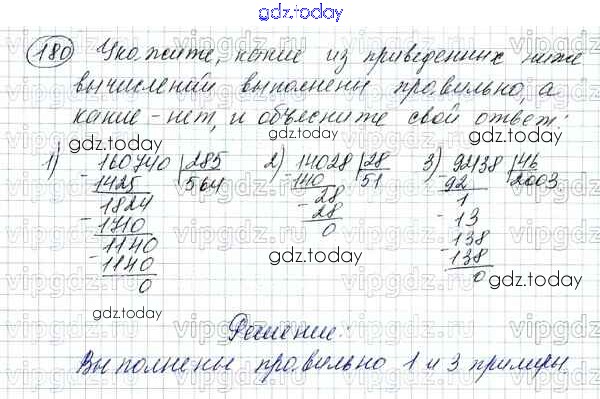 gdz.today
180 Укажите, какие из приведенных ниже
вычислений выполнены правильно, а
какие - нет, и объясните свой ответ:
gdz.today
1) 160740 | 285
- 1425 564
1824
- 1710
1140
- 1140
0
2) 14028 | 28
- 140 51
28
- 28
0
3) 92138 | 46
- 92 2003
1
- 13
138
- 138
0
gdz.today
gdz.today
gdz.today
gdz.today
gdz.today
gdz.today
Решение:
Выполнены правильно 1 и 3 примеры
vipgdz.ru